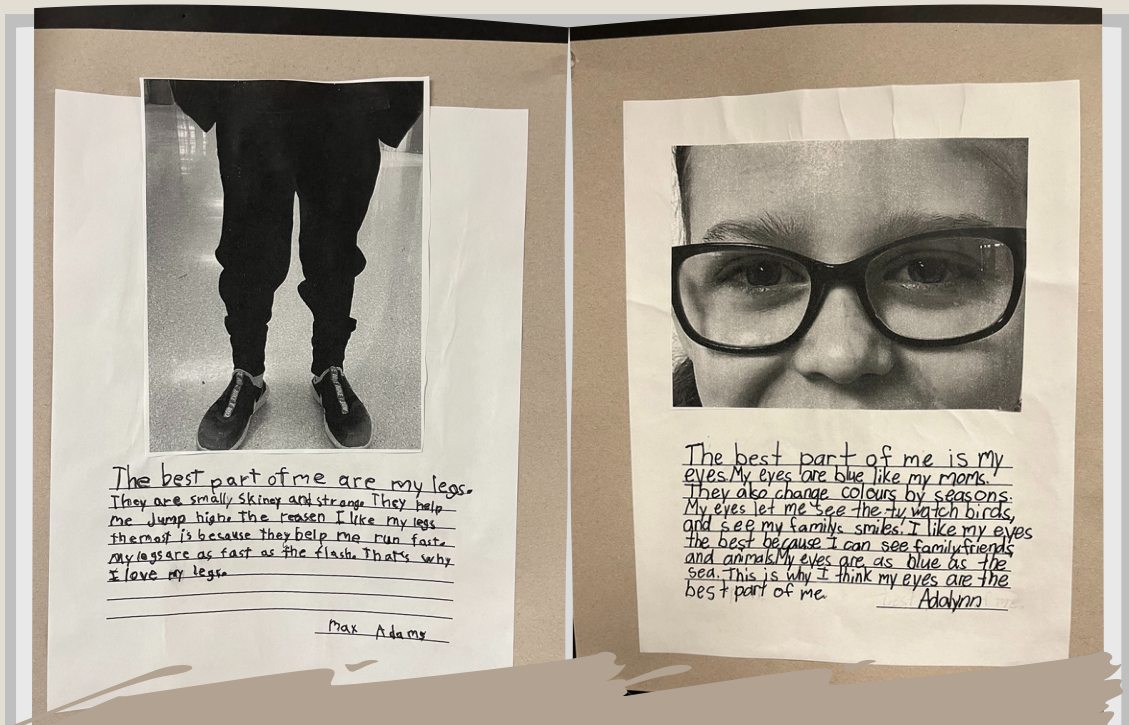 The best part of me are my legs.
They are smally skiney and strange They help
me jump high. The reasen I like my legs
themost is because they help me run fast.
my legs are as fast as the flash. That's why
I love my legs.
Max Adams
The best part of me is my
eyes.My eyes are blue like my moms.
They also change colours by seasons.
My eyes let me see the tv, watch birds,
and see my familys smiles! I like my eyes
the best because I can see family friends
and animals.My eyes are as blue as the
sea. This is why I think my eyes are the
best part of me.
Adalynn